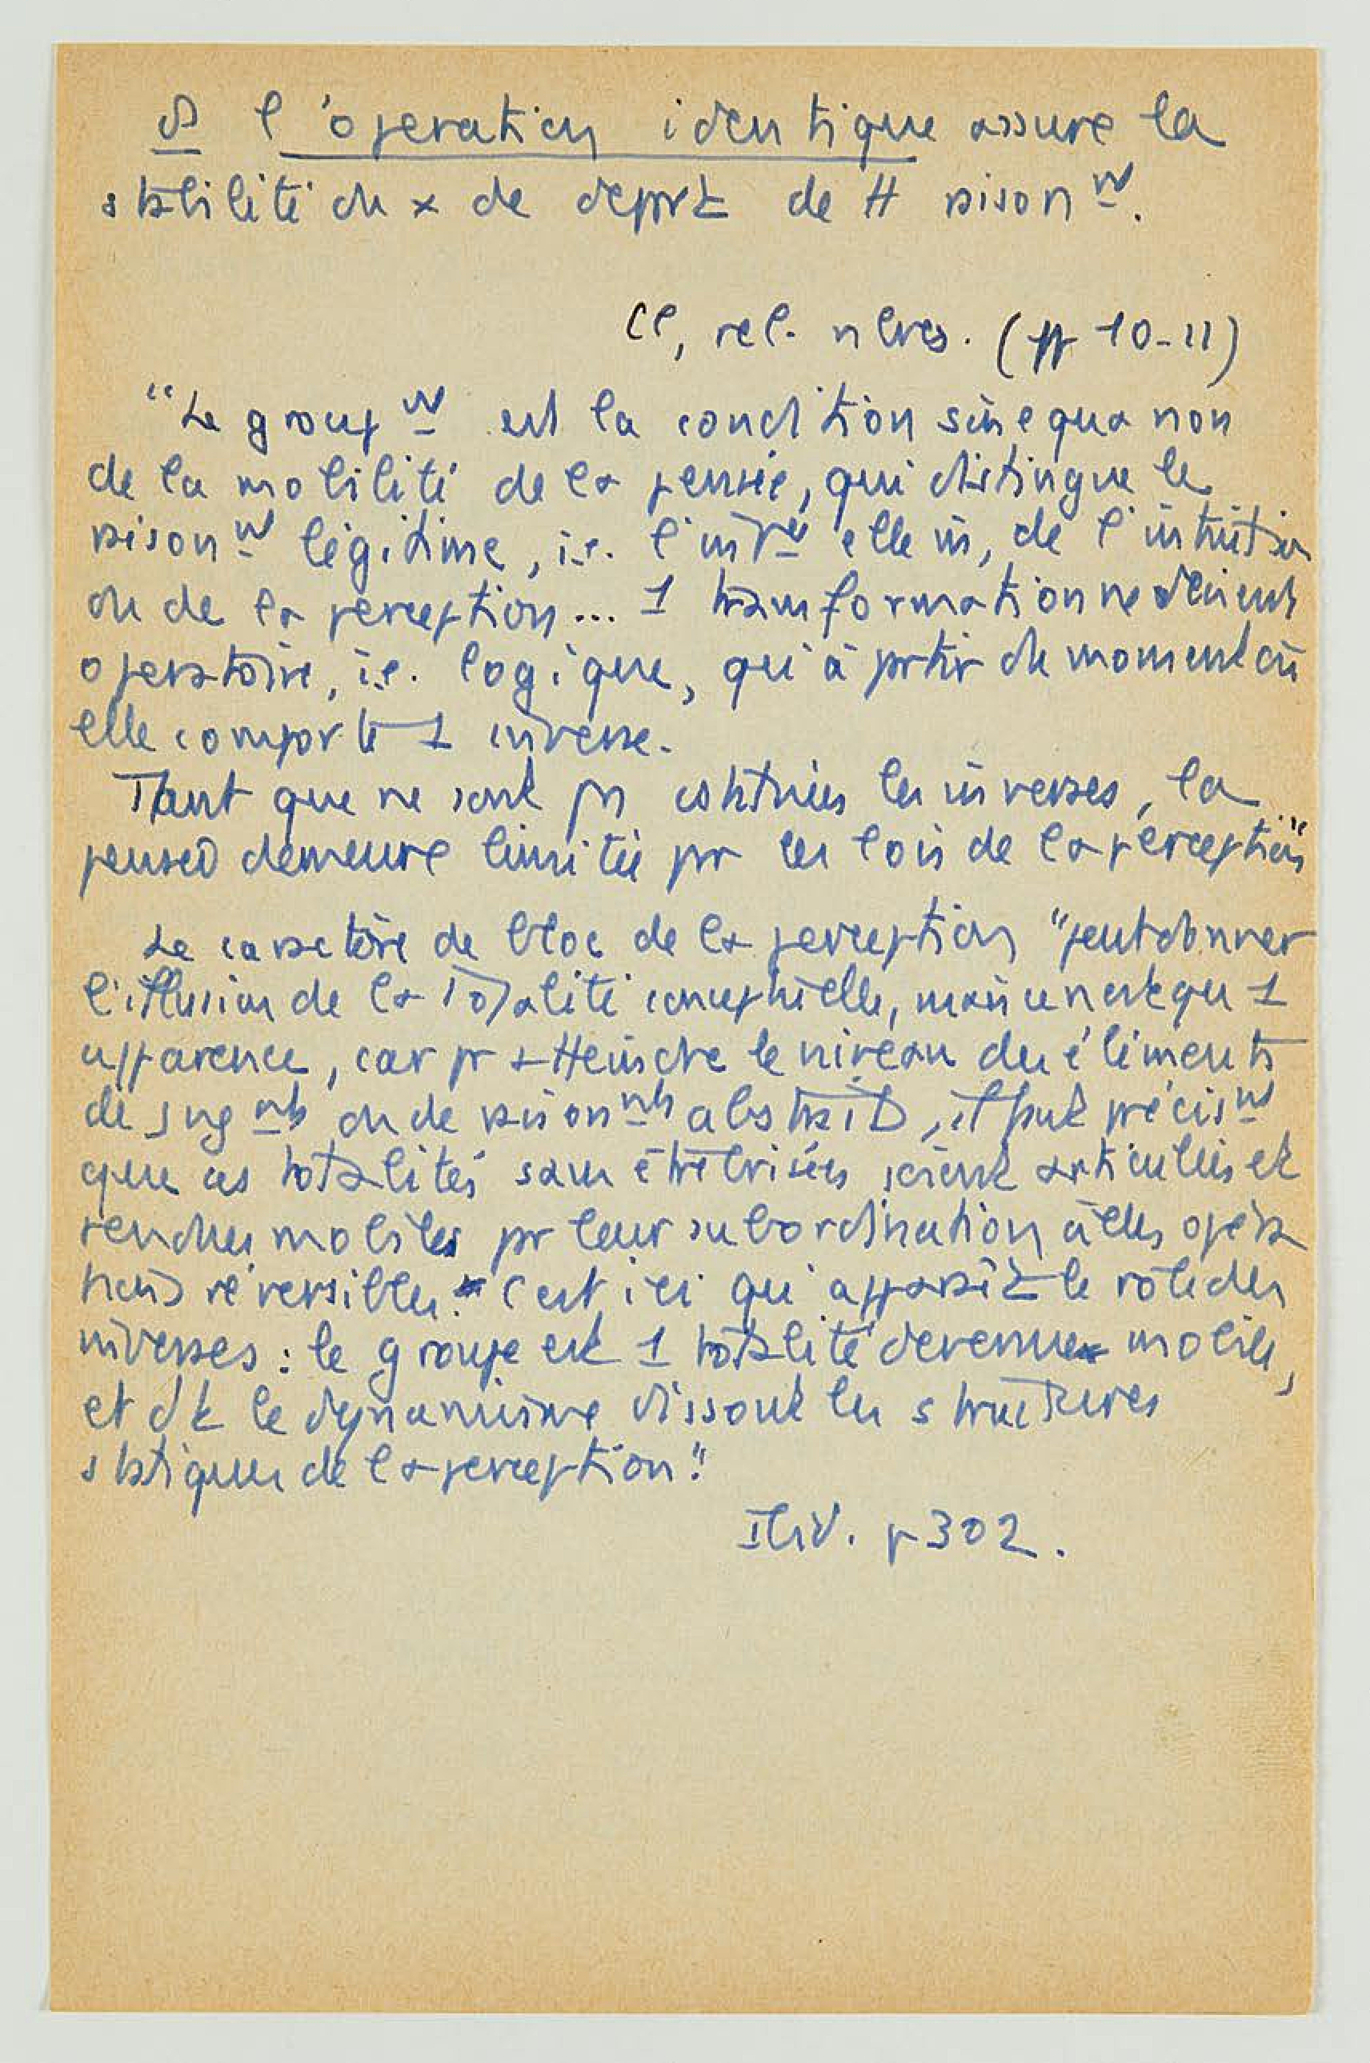 l'operation identique assure la
stabilité du x de départ de tt raisonnt.
Cl, rel. nbres. (pp 10-11)
"Le groupt est la condition sine qua non
de la mobilité de la pensée, qui distingue le
raisonnt légitime, i.e. l', de l'intuition
ou de la perception... 1 transformation ne devient
opératoire, i.e. logique, qu'à partir du moment où
elle comporte 1 inverse.
Tant que ne sont pas construites les inverses, la
pensée demeure limitée par les lois de la perception"
Le caractère de bloc de la perception "peut donner
l'illusion de la totalité conceptuelle, mais ce n'est qu'1
apparence, car pr atteindre le niveau des éléments
de jugnts ou de raisonnts abstraits, il faut précist
que ces totalités sans être brisées soient articulées et
rendues mobiles par leur subordination à des opéra
tions réversibles. C'est ici qu'apparaît le rôle des
inverses : le groupe est 1 totalité devenue mobile,
et dt le dynamisme dissout les structures
statiques de la perception."
Ibid. p 302.